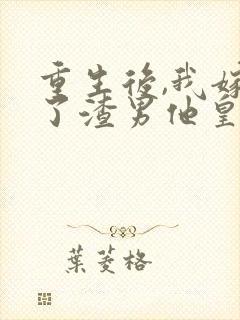 重生後,我嫁
了渣男他皇
葉菱格